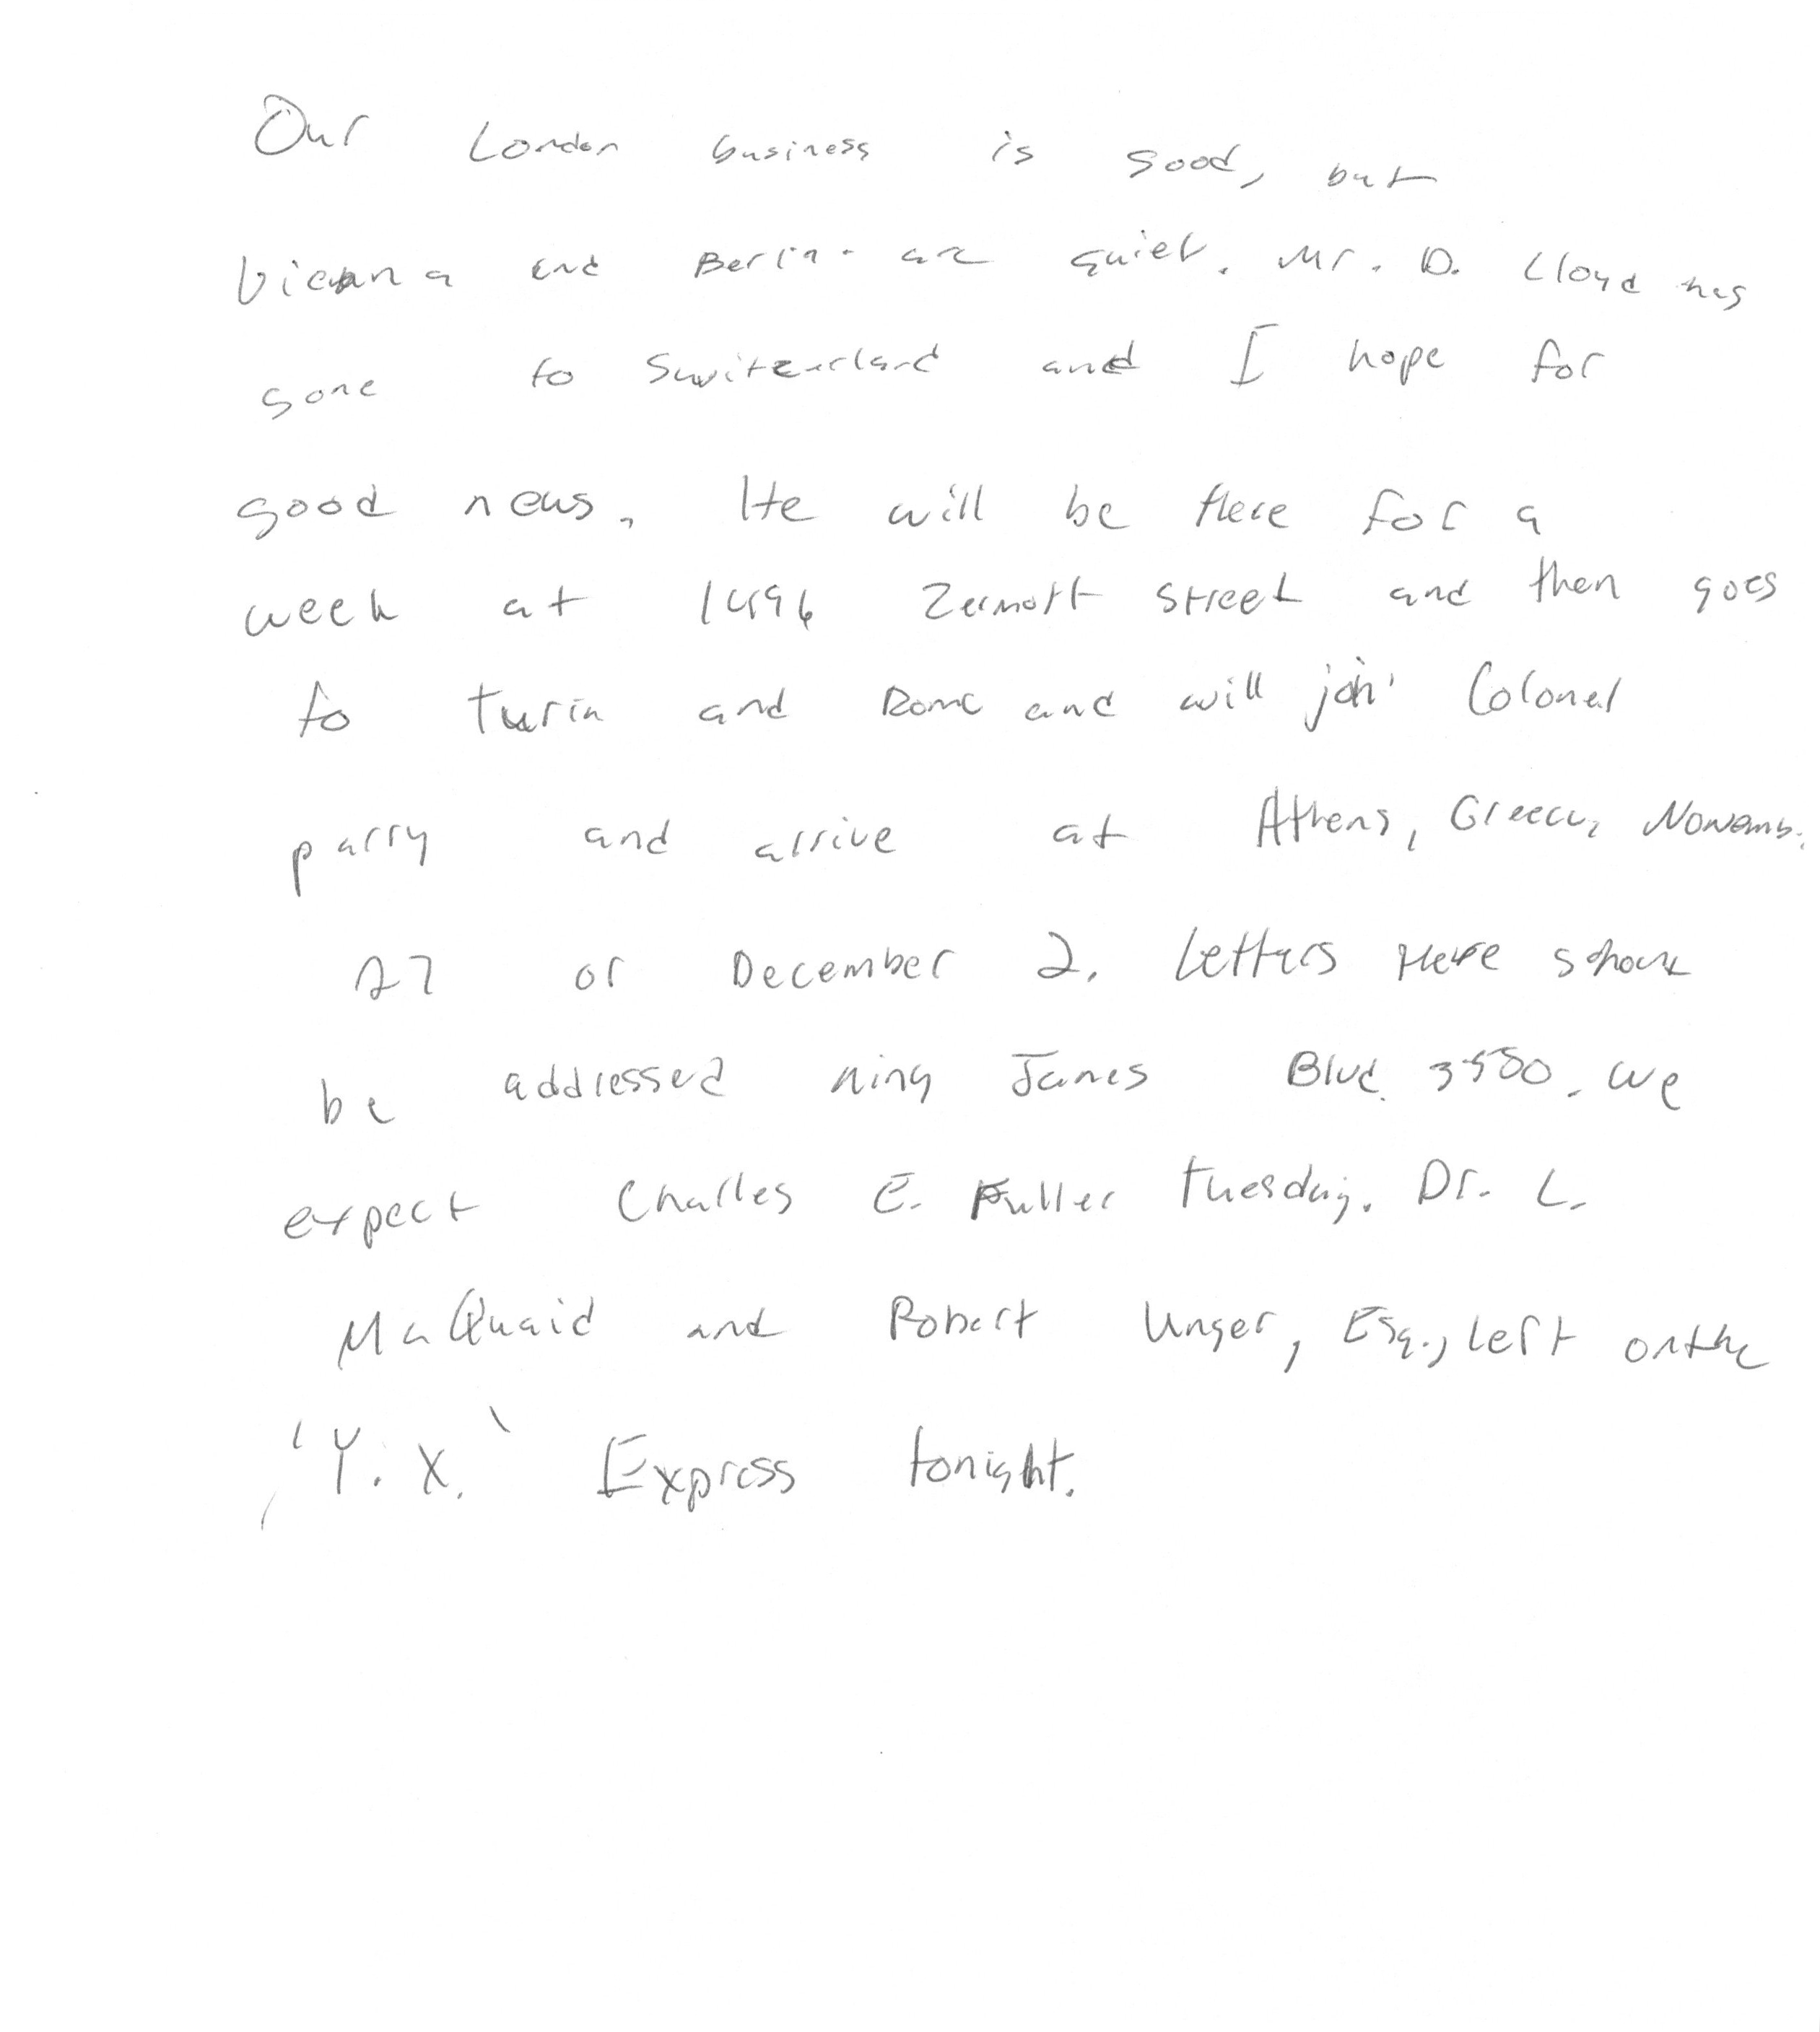 Our London business is good, but
Vienna and Berlin are quiet. Mr. D. Lloyd has
gone to Switzerland and I hope for
good news. He will be there for a
week at 1496 Zermott Street and then goes
to Turin and Rome and will join Colonel
parry and arrive at Athens, Greece, Novemb.
27 or December 2. Letters there should
be addressed King James Blvd. 3580. We
expect Charles E. Fuller Tuesday. Dr. L.
MaQuaid and Robert Unger, Esq., left on the
'Y.X.' Express tonight.